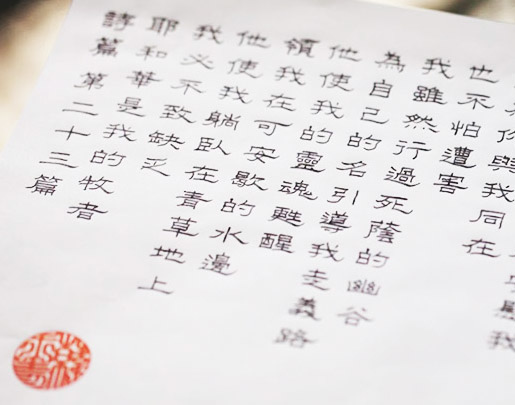 詩篇 第二十三篇
耶和華是我的牧者
我必不致缺乏
他使我躺臥在青草地上
領我在可安歇的水邊
他使我的靈魂甦醒
為自己的名引導我走義路
我雖然行過死蔭的幽谷
也不怕遭害
你與我同在
我